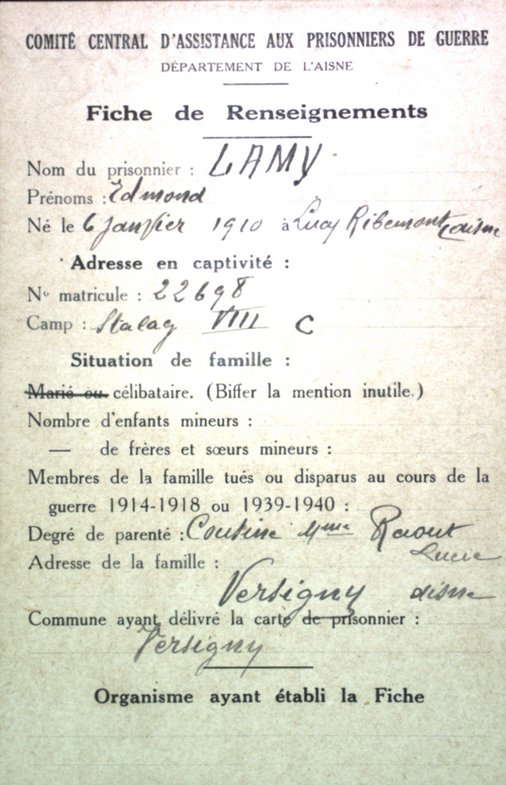 COMITÉ CENTRAL D'ASSISTANCE AUX PRISONNIERS DE GUERRE
DÉPARTEMENT DE L'AISNE
Fiche de Renseignements
Nom du prisonnier : LAMY
Prénoms : Edmond
Né le 6 Janvier 1910 à Lucy Ribemont Aisne
Adresse en captivité :
No matricule : 22698
Camp : Stalag VIII C
Situation de famille :
Marié ou célibataire. (Biffer la mention inutile.)
Nombre d'enfants mineurs :
— de frères et sœurs mineurs :
Membres de la famille tués ou disparus au cours de la
guerre 1914-1918 ou 1939-1940 :
Degré de parenté : Cousine Mme Raout
Lucie
Adresse de la famille :
Versigny Aisne
Commune ayant délivré la carte de prisonnier :
Versigny
Organisme ayant établi la Fiche